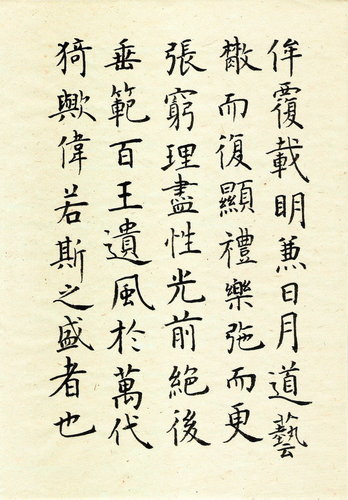 侔覆載明兼日月道藝
㪚而復顯禮樂弛而更
張窮理盡性光前絕後
垂範百王遺風於萬代
猗歟偉若斯之盛者也